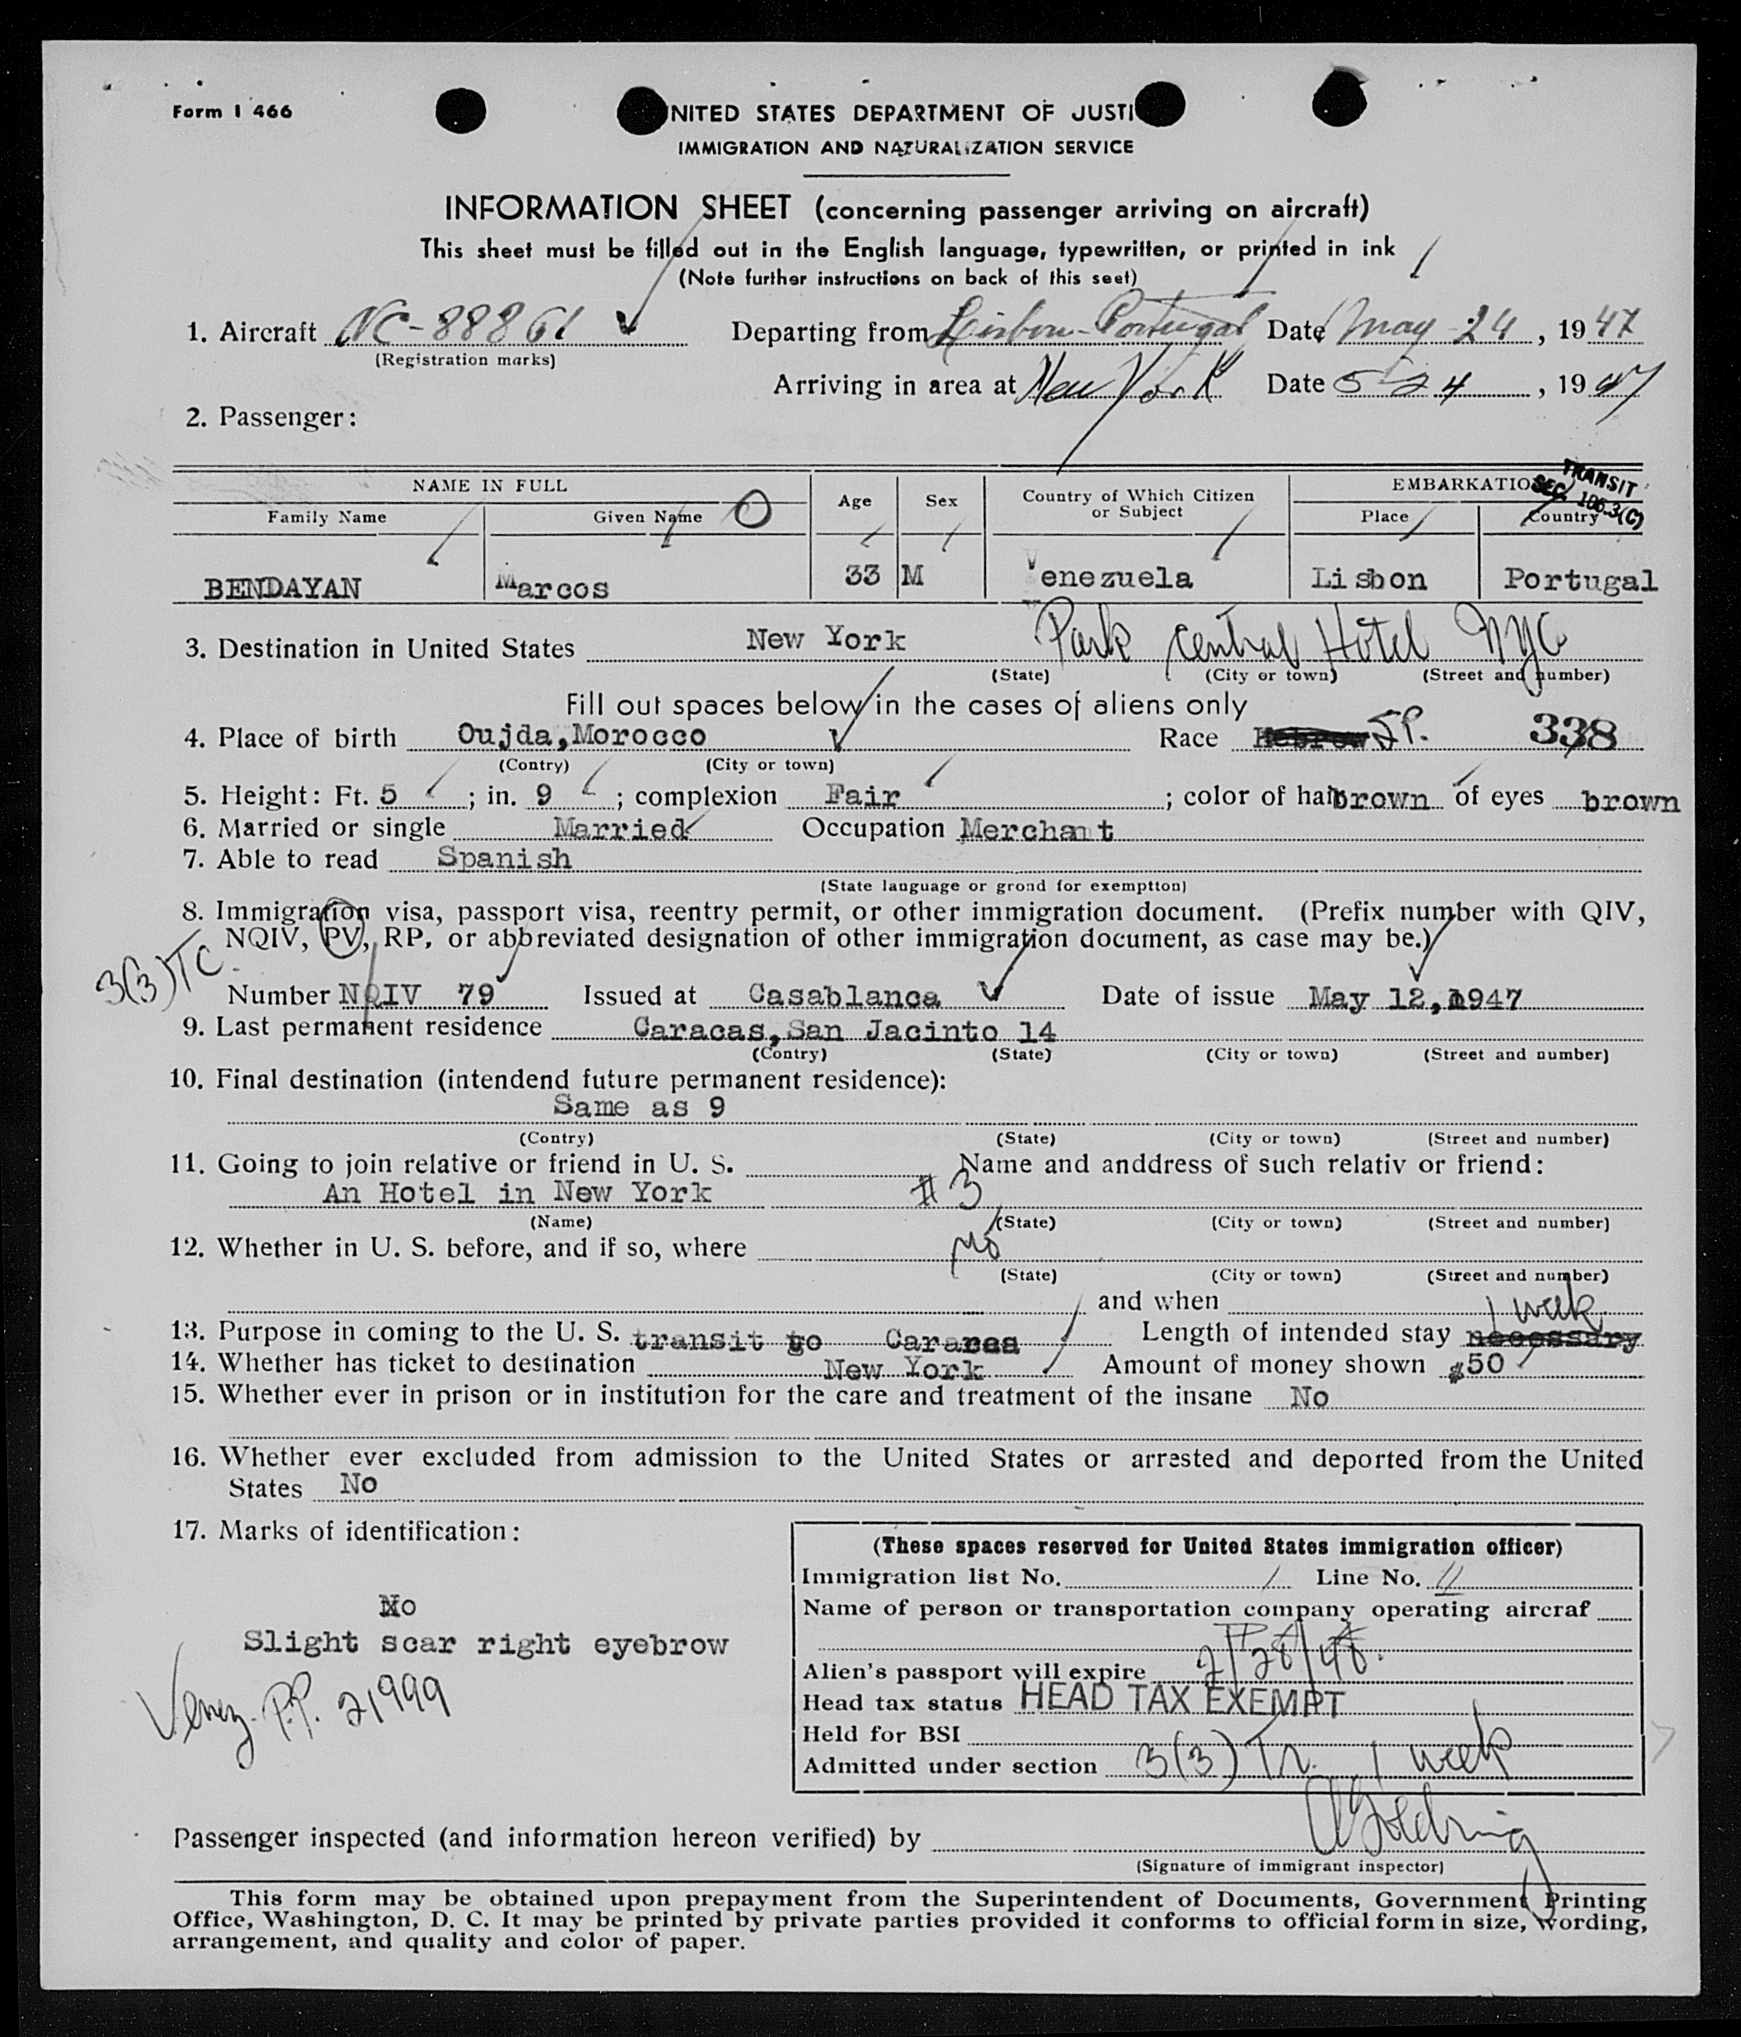 Form I 466
NITED STATES DEPARTMENT OF JUSTI
IMMIGRATION AND NATURALIZATION SERVICE
INFORMATION SHEET (concerning passenger arriving on aircraft)
This sheet must be filled out in the English language, typewritten, or printed in ink
(Note further instructions on back of this seet)
1. Aircraft NC-88861 Departing from Lisbon-Portugal Date May 24, 1947
(Registration marks)
Arriving in area at New York Date 5-24, 1947
2. Passenger:
TRANSIT
SEC. 106.3(C)
NAME IN FULL Age Sex Country of Which Citizen or Subject EMBARKATIO
Family Name Given Name Place Country
BENDAYAN Marcos 33 M Venezuela Lisbon Portugal
3. Destination in United States New York Park Central Hotel NYC
(State) (City or town) (Street and number)
Fill out spaces below in the cases of aliens only
4. Place of birth Oujda, Morocco Race Hebrew SP. 338
(Contry) (City or town)
5. Height: Ft. 5 ; in. 9 ; complexion Fair ; color of hair brown of eyes brown
6. Married or single Married Occupation Merchant
7. Able to read Spanish
(State language or grond for exemptton)
8. Immigration visa, passport visa, reentry permit, or other immigration document. (Prefix number with QIV,
NQIV, PV, RP, or abbreviated designation of other immigration document, as case may be.)
3(3)TC
Number NQIV 79 Issued at Casablanca Date of issue May 12, 1947
9. Last permanent residence Caracas, San Jacinto 14
(Contry) (State) (City or town) (Street and number)
10. Final destination (intendend future permanent residence):
Same as 9
(Contry) (State) (City or town) (Street and number)
11. Going to join relative or friend in U. S. Name and anddress of such relativ or friend:
An Hotel in New York #3
(Name) (State) (City or town) (Street and number)
12. Whether in U. S. before, and if so, where No
(State) (City or town) (Street and number)
and when
1 week
13. Purpose in coming to the U. S. transit to Caracas Length of intended stay necessary
14. Whether has ticket to destination New York Amount of money shown $50
15. Whether ever in prison or in institution for the care and treatment of the insane No
16. Whether ever excluded from admission to the United States or arrested and deported from the United
States No
17. Marks of identification:
No
Slight scar right eyebrow
Venez. P.P. 21999
(These spaces reserved for United States immigration officer)
Immigration list No. 1 Line No. 11
Name of person or transportation company operating aircraf
Alien's passport will expire 2/28/48.
Head tax status HEAD TAX EXEMPT
Held for BSI
Admitted under section 3(3) Tr. 1 week
Passenger inspected (and information hereon verified) by
(Signature of immigrant inspector)
This form may be obtained upon prepayment from the Superintendent of Documents, Government Printing
Office, Washington, D. C. It may be printed by private parties provided it conforms to official form in size, wording,
arrangement, and quality and color of paper.